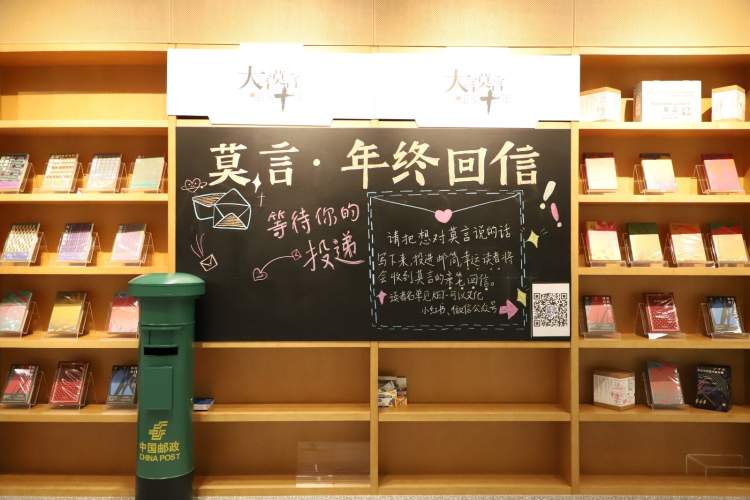 大言莫言
大言莫言
莫言·年终回信
等待你的
投递
请把想对莫言说的话
写下来,投进邮筒,幸运读者将
会收到莫言的亲笔回信。
小红书、微信公众号
中国邮政
CHINA POST